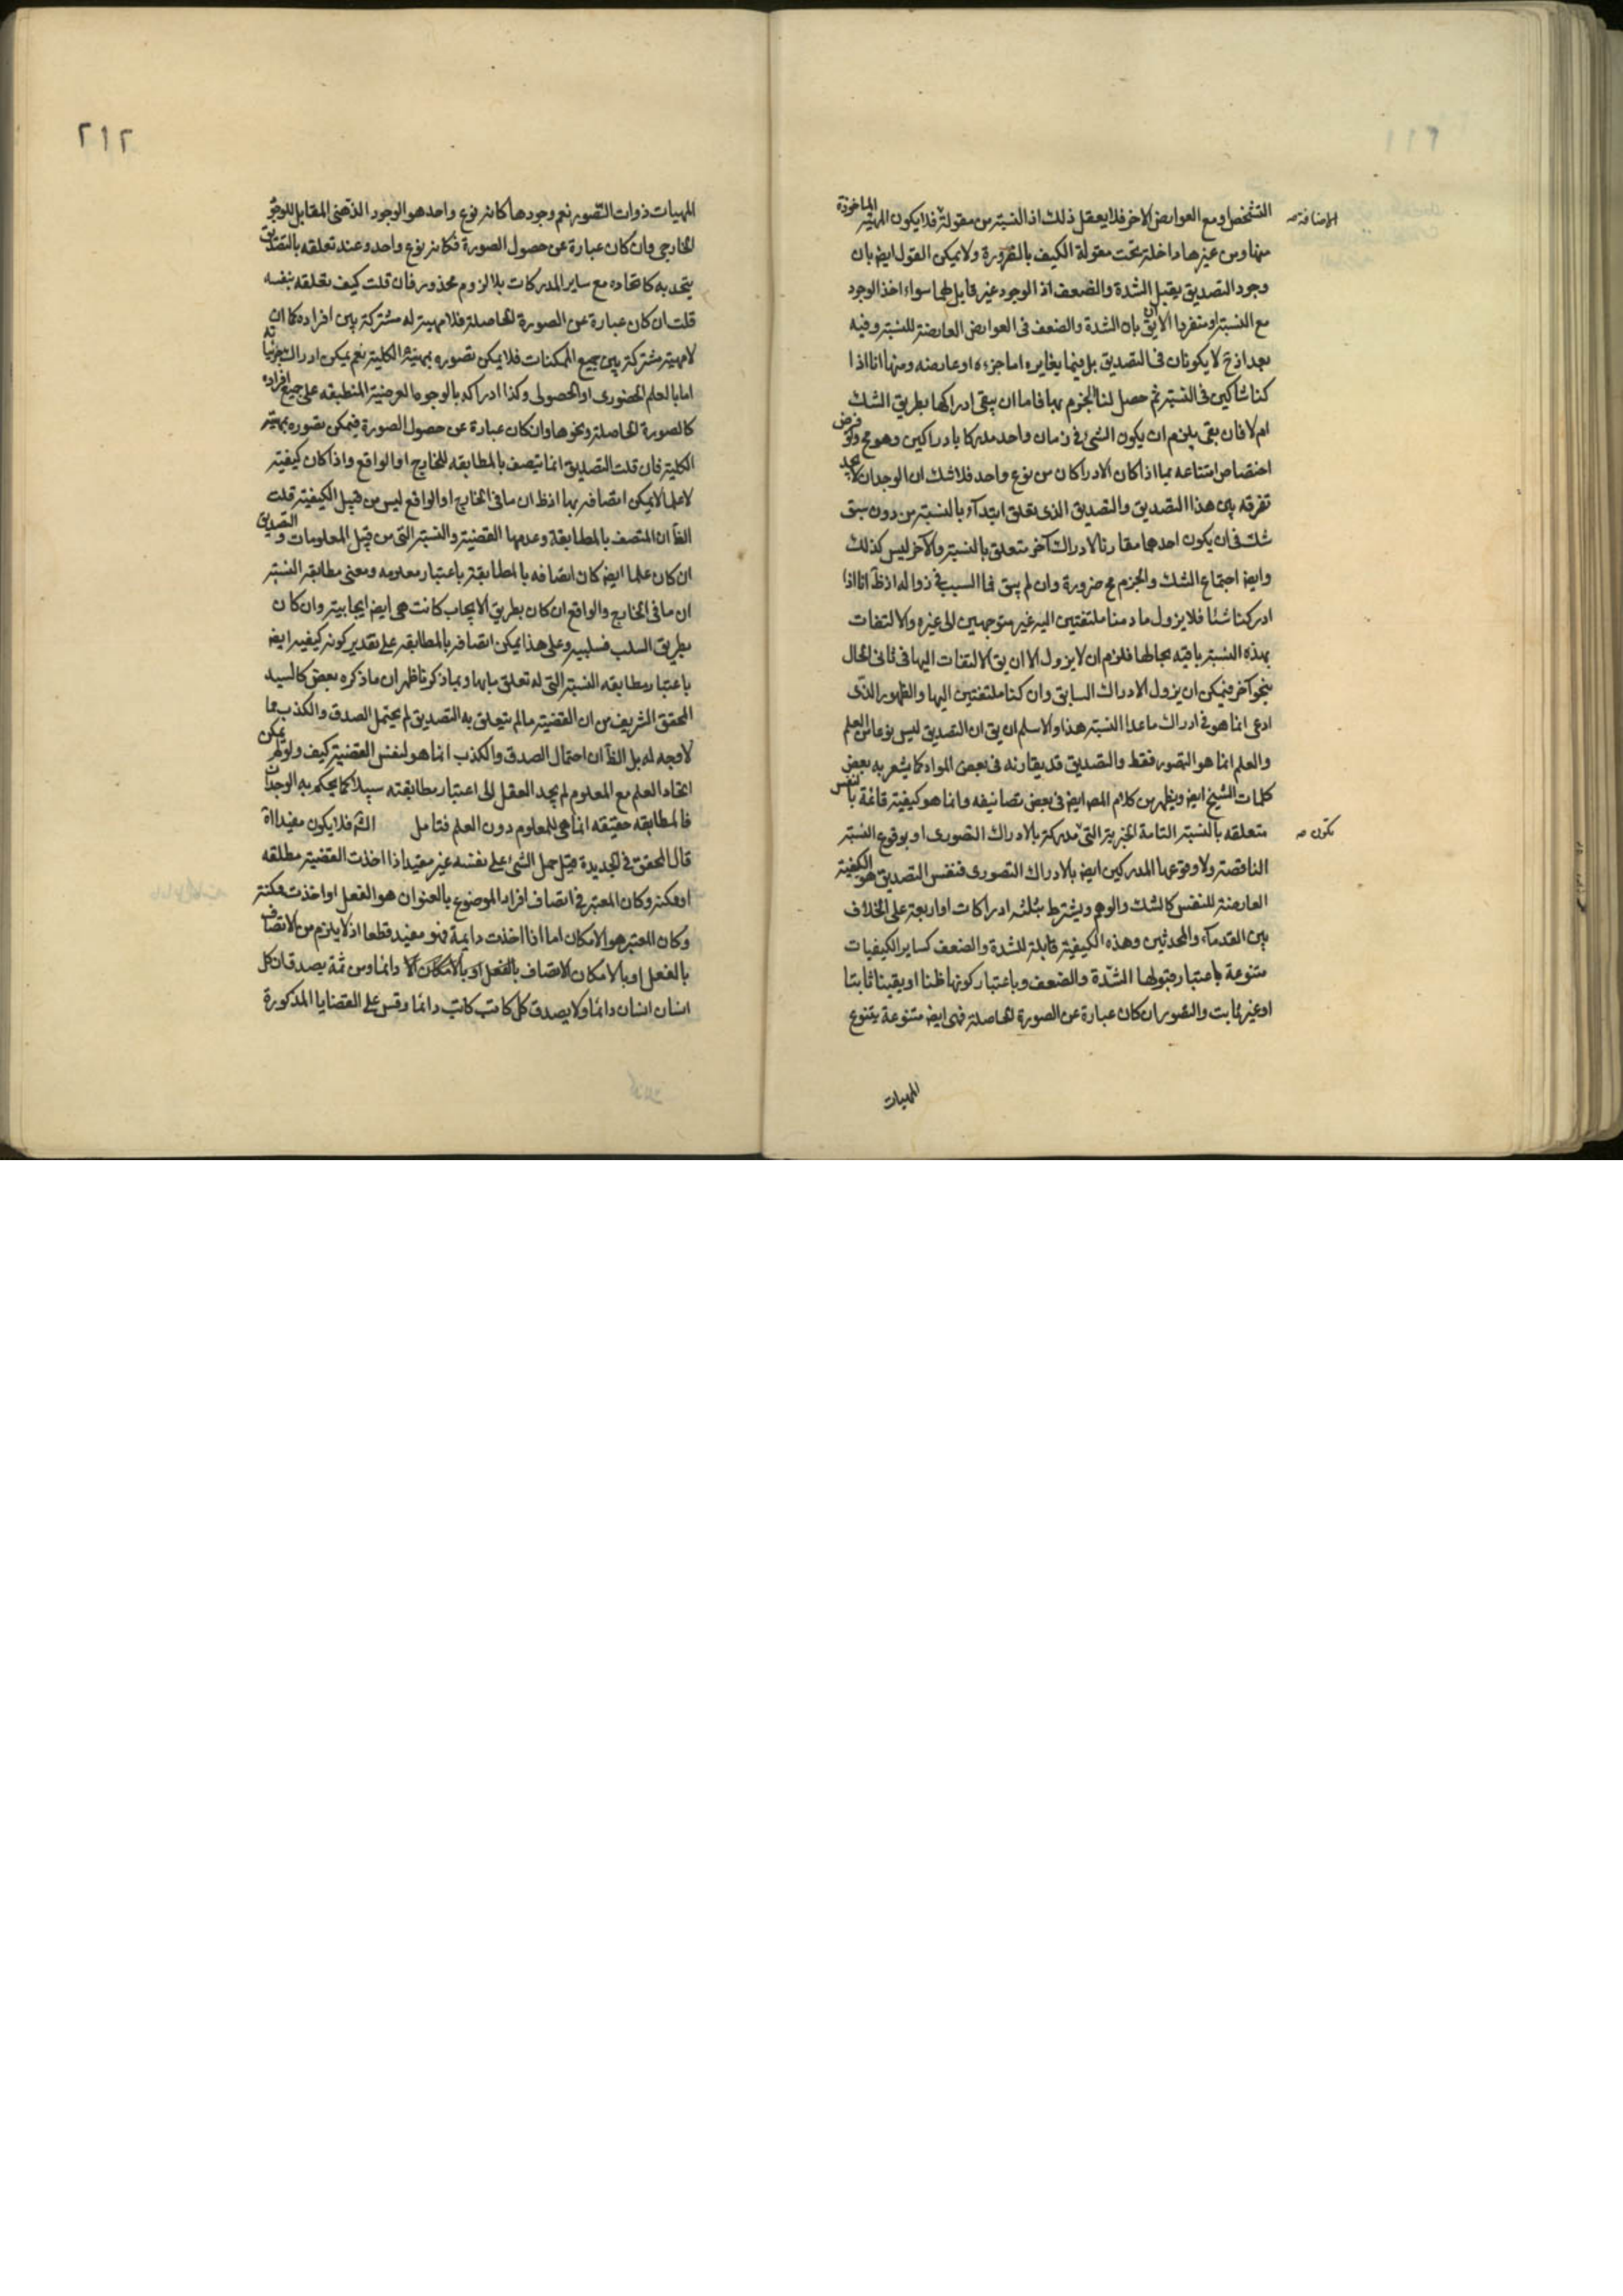 التشخص او مع العوارض الاخر فلا يعقل ذلك اذ النسبة من مقولة فلا يكون المهية الماخوذة
الاضافة صح
منها ومن غيرها داخلة تحت مقولة الكيف بالضرورة ولا يمكن القول ايض بان
وجود التصديق يقبل الشدة والضعف اذ الوجود غير قابل لهما سواء اخذ الوجود
مع النسبة او منفردا الا ان يق بان الشدة والضعف في العوارض العارضة للنسبة وفيه
بعد اذ ح لا يكونان في التصديق بل فيما يغايره اما جزءه او عارضه ومنها انا اذا
كنا شاكين في النسبة ثم حصل لنا الجزم بها فاما ان يبقى ادراكها بطريق الشك
ام لا فان بقى يلزم ان يكون الشئ في زمان واحد مدركا بادراكين وهو مح ولو فرض
اختصاص امتناعه بما اذا كان الادراكان من نوع واحد فلا شك ان الوجدان لا يجد
تفرقة بين هذا التصديق والتصديق الذى تعلق ابتدآء بالنسبة من دون سبق
شك في ان يكون احدهما مقارنا لادراك آخر متعلق بالنسبة والآخر ليس كذلك
وايض اجتماع الشك والجزم مح ضرورة وان لم يبق فما السبب في زواله اذ ظ انا اذا
ادركنا شئا فلا يزول ما دمنا ملتفتين اليه غير متوجهين الى غيره والالتفات
بهذه النسبة باقية بحالها فلزم ان لا يزول الا ان يق الالتفات اليها في ثانى الحال
بنحو آخر فيمكن ان يزول الادراك السابق وان كنا ملتفتين اليها والظهور الذى
ادعى انما هو في ادراك ما عدا النسبة هذا والاسلم ان يق ان التصديق ليس نوعا من العلم
والعلم انما هو التصور فقط والتصديق قد يقارنه في بعض المواد كما يشعر به بعض
كلمات الشيخ ايض ويظهر من كلام المص ايض في بعض تصانيفه وانما هو كيفية قائمة بالنفس
متعلقة بالنسبة التامة الخبرية التى مدركة بالادراك التصورى او بوقوع النسبة
تكون صح
الناقصة ولا وقوعها المدركين ايض بالادراك التصورى فنفس التصديق هو الكيفية
العارضة للنفس كالشك والوهم ويشترط بثلثه ادراكات او اربعة على الخلاف
بين القدمآء والمحدثين وهذه الكيفية قابلة للشدة والضعف كساير الكيفيات
متنوعة باعتبار قبولها الشدة والضعف وباعتبار كونها ظنا او يقينا ثابتا
او غير ثابت والتصور ان كان عبارة عن الصورة الحاصلة فهى ايض متنوعة بتنوع
المهيات
٢١٢
المهيات ذوات التصور نعم وجودها كانه نوع واحد هو الوجود الذهنى المقابل للوجود
الخارجى وان كان عبارة عن حصول الصورة فكانه نوع واحد وعند تعلقه بالتصديق
يتحد به كاتحاده مع ساير المدركات بلا لزوم محذور فان قلت كيف تعلقه بنفسه
قلت ان كان عبارة عن الصورة الحاصلة فلا مهية له مشتركة بين افراده كما انه
لا مهية مشتركة بين جميع الممكنات فلا يمكن تصوره بمهيته الكلية نعم يمكن ادراك جزئياته
اما بالعلم الحضورى او الحصولى وكذا ادراكه بالوجوه العرضية المنطبقة على جميع افراده
كالصورة الحاصلة ونحوها وان كان عبارة عن حصول الصورة فيمكن تصوره بمهيته
الكلية فان قلت التصديق انما يتصف بالمطابقه للخارج او الواقع واذا كان كيفية
لا علما لا يمكن اتصافه بها اذ ظ ان ما في الخارج او الواقع ليس من قبيل الكيفية قلت
الظآ ان المتصف بالمطابقة وعدمها القضية والنسبة التى من قبيل المعلومات والتصديق
ان كان علما ايض كان اتصافه بالمطابقة باعتبار معلومه ومعنى مطابقة النسبة
ان ما في الخارج والواقع ان كان بطريق الايجاب كانت هى ايض ايجابية وان كان
بطريق السلب فسلبية وعلى هذا يمكن اتصافه بالمطابقه على تقدير كونه كيفيه ايض
باعتبار مطابقه النسبة التى له تعلق ما بها وبما ذكرنا ظهر ان ما ذكره بعض كالسيد
المحقق الشريف من ان القضية ما لم يتعلق به التصديق لم يحتمل الصدق والكذب مما
لا وجه له بل الظآ ان احتمال الصدق والكذب انما هو لنفس القضية كيف ولو لم يكن
اتحاد العلم مع المعلوم لم يجد العقل الى اعتبار مطابقته سبيلا كما يحكم به الوجدان
فالمطابقه حقيقه انما هى للمعلوم دون العلم فتامل فلا يكون مفيدا اه
قال المحقق في الجديدة قيل حمل الشئ على نفسه غير مفيد اذا اخذت القضية مطلقه
او ممكنة وكان المعتبر في اتصاف افراد الموضوع بالعنوان هو الفعل او اخذت ممكنة
وكان المعتبر هو الامكان اما اذا اخذت دايمة فهو مفيد قطعا اذ لا يلزم من الاتصاف
بالفعل او بالامكان الاتصاف بالفعل او بالامكان دائما ومن ثمة يصدق ان كل
انسان انسان دائما ولا يصدق كل كاتب كاتب دائما وقس على القضايا المذكورة